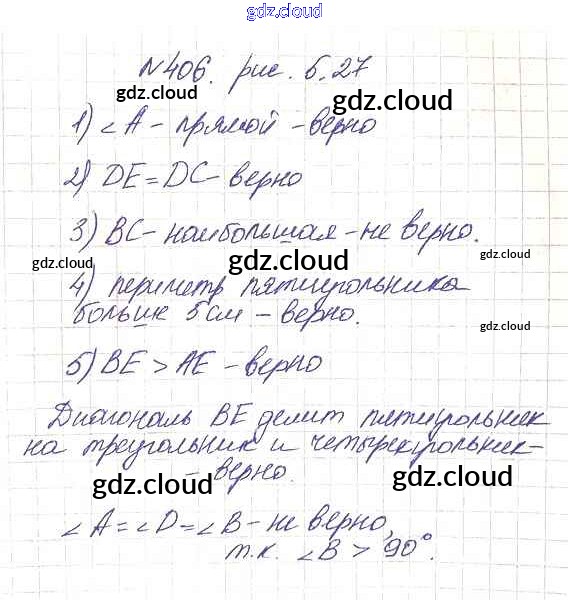 gdz.cloud
№406. рис. 5.27
gdz.cloud gdz.cloud
1) ∠A - прямой - верно
2) DE = DC - верно
3) BC - наибольшая - не верно.
gdz.cloud gdz.cloud gdz.cloud
4) периметр пятиугольника
больше 5 см - верно.
gdz.cloud
5) BE > AE - верно
gdz.cloud gdz.cloud
Диагональ BE делит пятиугольник
на треугольник и четырехугольник-
- верно.
gdz.cloud gdz.cloud
∠A = ∠D = ∠B - не верно,
т.к. ∠B > 90°.